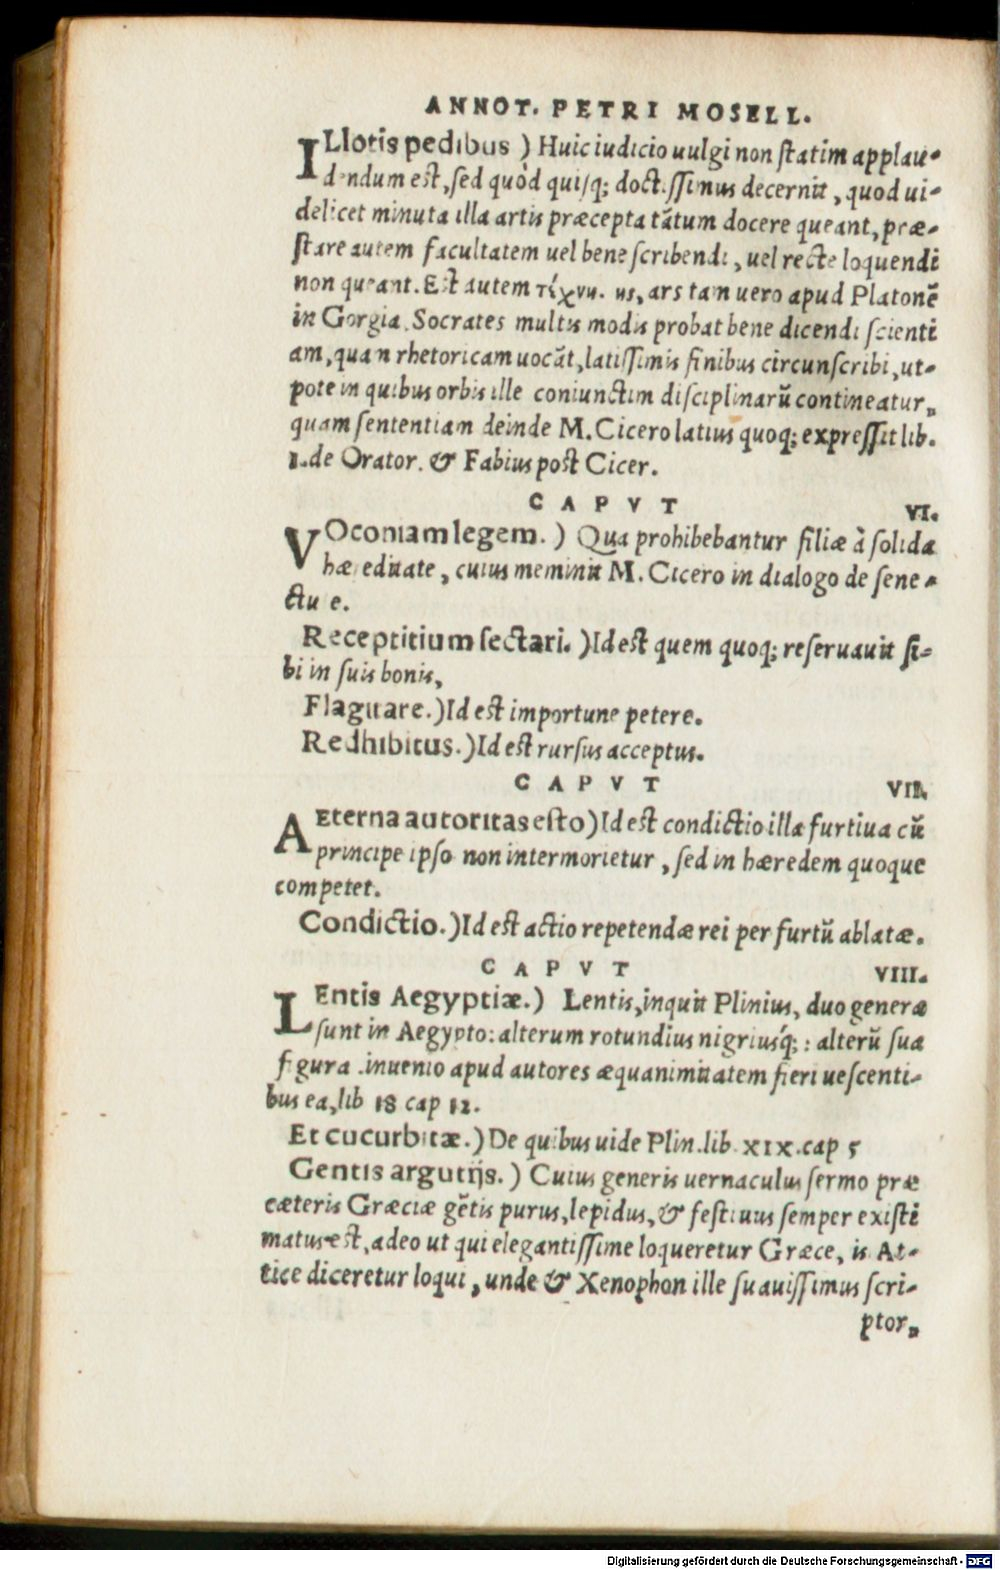 ANNOT. PETRI MOSELL.
ILlotis pedibus ) Huic iudicio uulgi non statim applau-
dendum est, sed quòd quisq; doctissimus decernit, quod ui-
delicet minuta illa artis præcepta tãtum docere queant, præ-
stare autem facultatem uel bene scribendi, uel recte loquendi
non queant. Est autem ars tam uero apud Platonẽ
in Gorgia. Socrates multis modis probat bene dicendi scienti
am, quam rhetoricam uocãt, latissimis finibus circunscribi, ut-
pote in quibus orbis ille coniunctim disciplinarũ contineatur,
quam sententiam deinde M. Cicero latius quoq; expressit lib.
1. de Orator. & Fabius post Cicer.
CAPVT VI.
VOconiam legem. ) Qua prohibebantur filiæ à solida
hæreditate, cuius meminit M. Cicero in dialogo de sene-
ctu e.
Receptitium sectari. ) Id est quem quoq; reseruauit si-
bi in suis bonis,
Flagitare.) Id est importune petere.
Redhibitus.) Id est rursus acceptus.
CAPVT VII.
AEterna autoritas esto) Id est condictio illa furtiua cũ
principe ipso non intermorietur, sed in hæredem quoque
competet.
Condictio.) Id est actio repetendæ rei per furtũ ablatæ.
CAPVT VIII.
LEntis Aegyptiæ.) Lentis, inquit Plinius, duo genera
sunt in Aegypto: alterum rotundius nigriusq́;: alterũ sua
figura. inuenio apud autores æquanimitatem fieri uescenti-
bus ea, lib 18 cap 12.
Et cucurbitæ.) De quibus uide Plin. lib. XIX. cap 5
Gentis argutijs. ) Cuius generis uernaculus sermo præ
cæteris Græciæ gẽtis purus, lepidus, & festiuus semper existi
matus est, adeo ut qui elegantissime loqueretur Græce, is At-
tice diceretur loqui, unde & Xenophon ille suauissimus scri-
ptor,
Digitalisierung gefördert durch die Deutsche Forschungsgemeinschaft - DFG